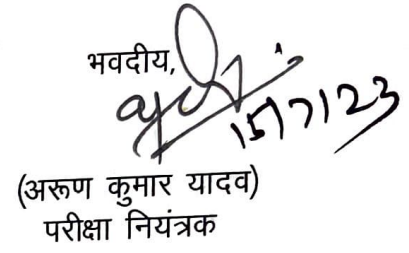 भवदीय,
15/7/23
(अरूण कुमार यादव)
परीक्षा नियंत्रक